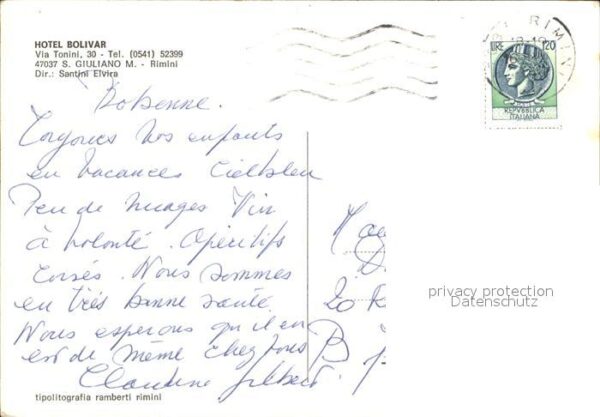 HOTEL BOLIVAR
Via Tonini, 30 - Tel. (0541) 52399
47037 S. GIULIANO M. - Rimini
Dir.: Santini Elvira
RIMINI
LIRE 120
REPVBBLICA
ITALIANA
vos enfants
en vacances Ciel bleu
Peu de nuages Vin
à volonté. Apéritifs
Corsés. Nous sommes
en très bonne santé.
Nous espérons qu'il en
est de même chez vous
Claudine Gilbert.
20 R
B
privacy protection
Datenschutz
tipolitografia ramberti rimini